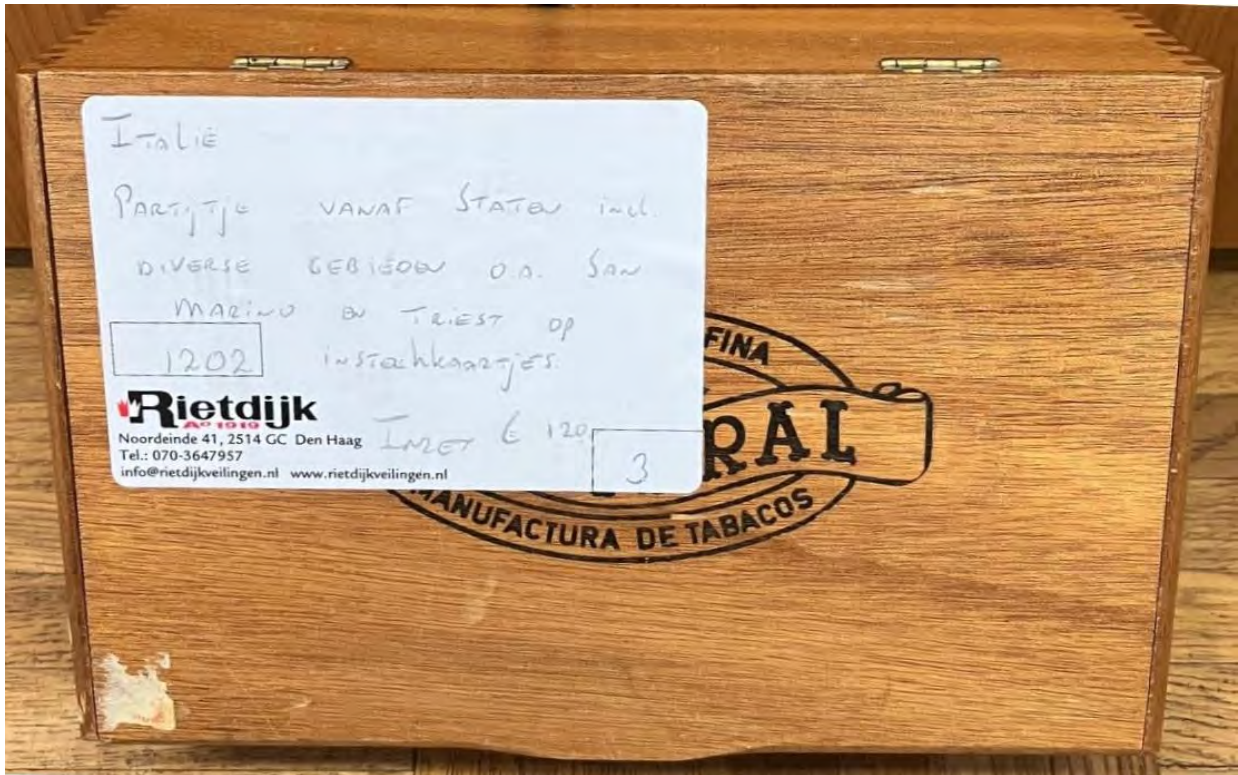 Italië
Partijtje vanaf Staten incl.
diverse gebieden o.a. San
Marino en Triest op
1202 insteekkaartjes.
Rietdijk
Aº 1919
Noordeinde 41, 2514 GC Den Haag
Tel.: 070-3647957
info@rietdijkveilingen.nl www.rietdijkveilingen.nl
Inzet € 120,
3
FINA
RAL
MANUFACTURA DE TABACOS